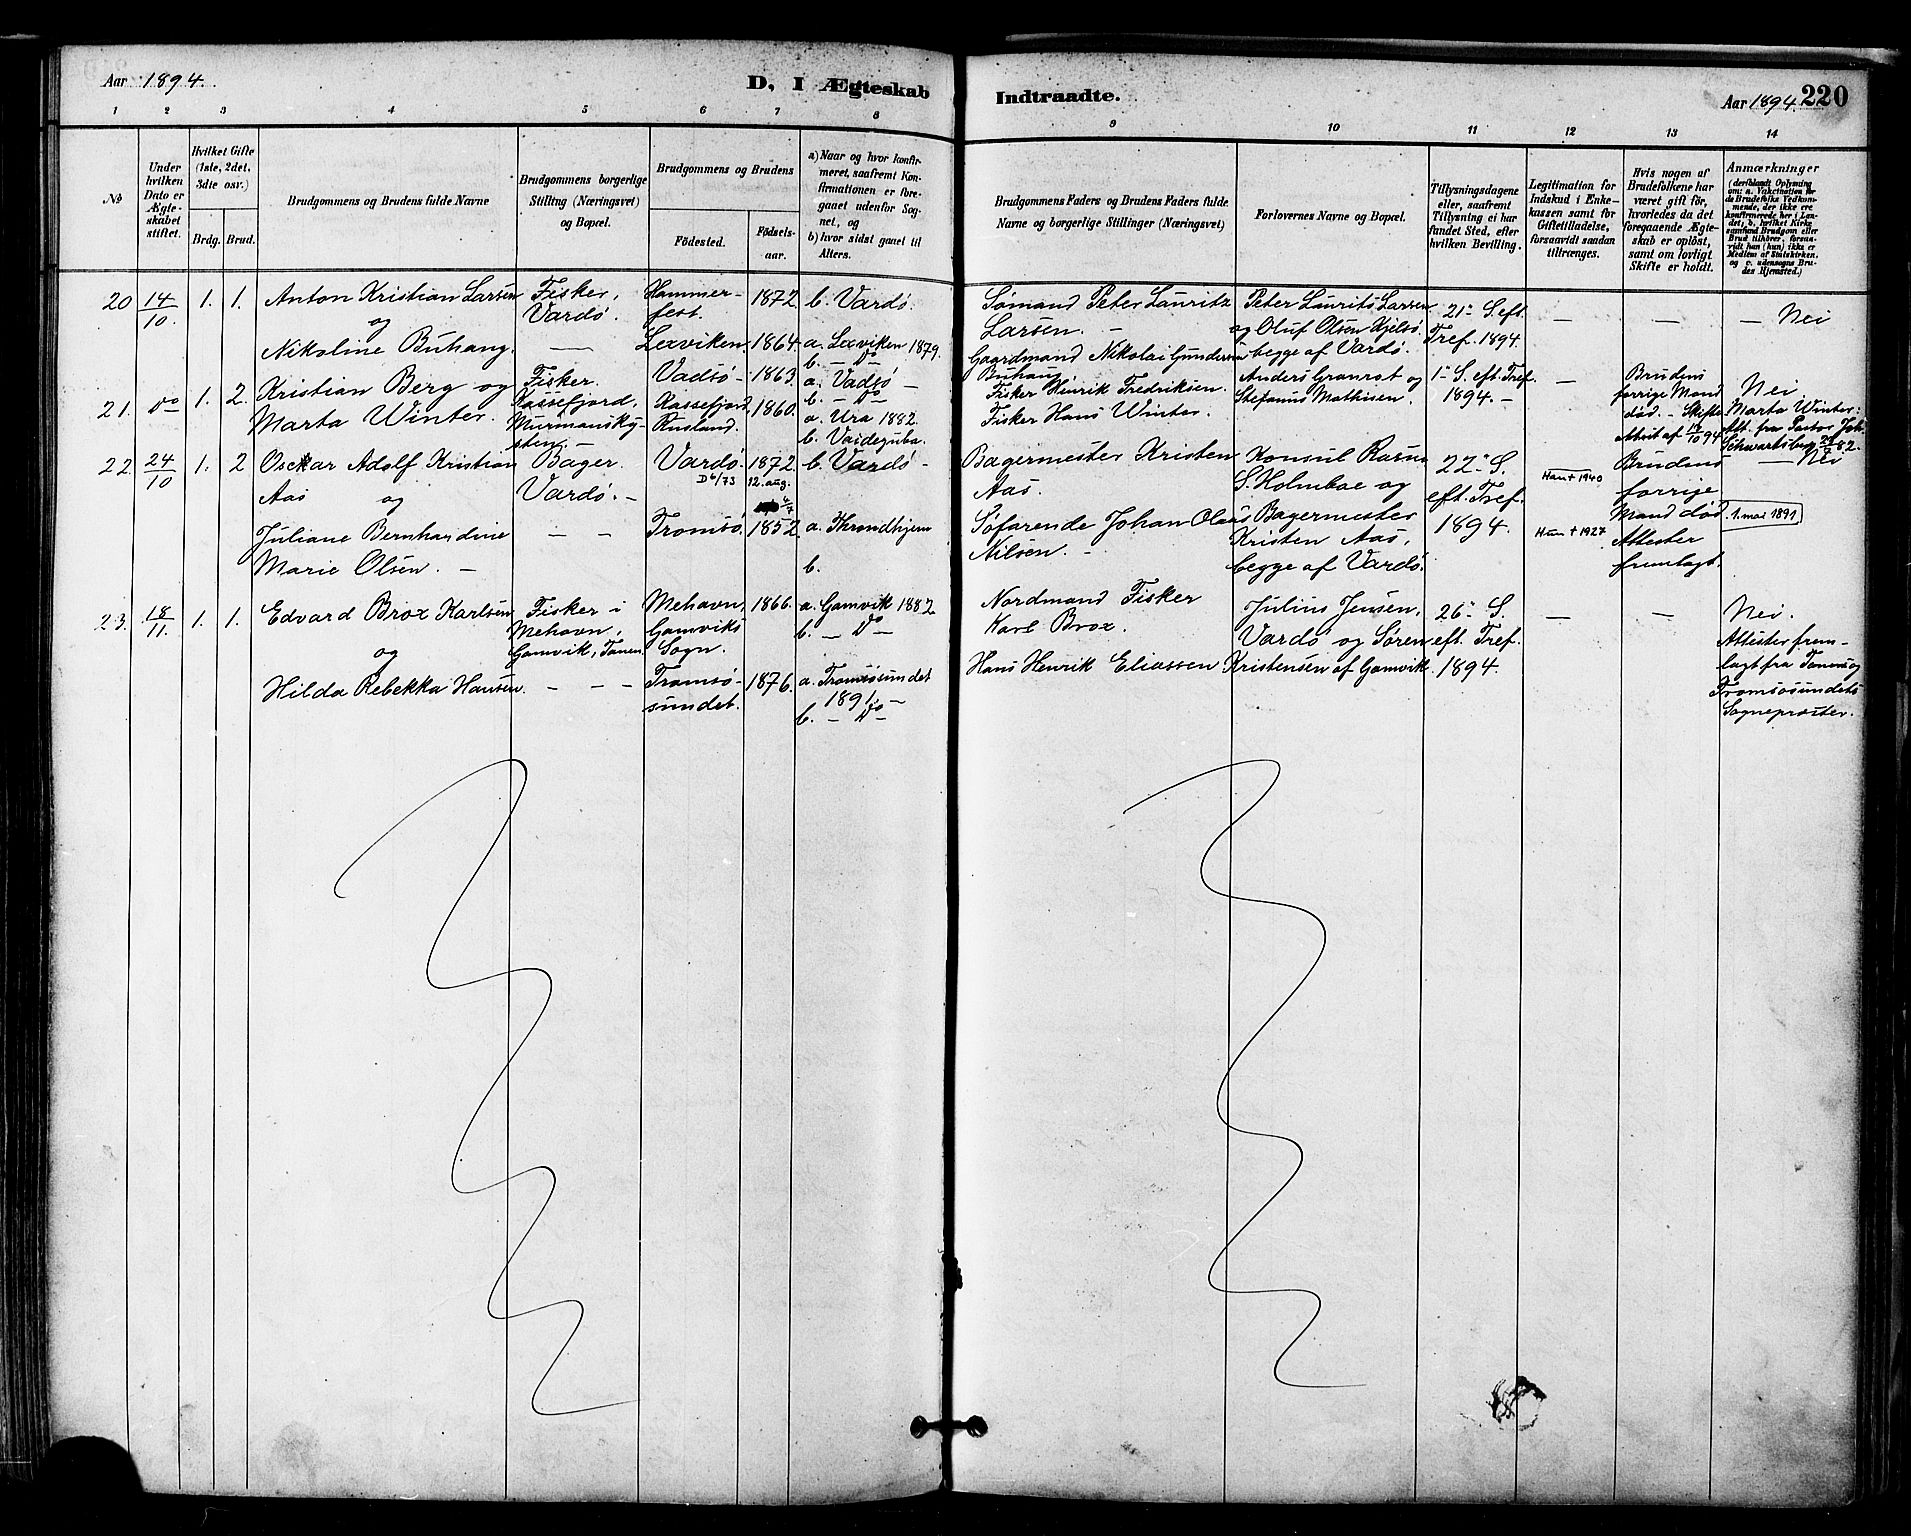 Aar 1894.
D, I Ægteskab
Indtraadte.
Aar 1894. 220
1 2 3 4 5 6 7 8 9 10 11 12 13 14
No
Under hvilken Dato er Ægteskabet stiftet.
Hvilket Gifte (1ste, 2det, 3die osv.)
Brdg. Brud.
Brudgommens og Brudens fulde Navne
Brudgommens borgerlige Stilling (Næringsvei) og Bopæl.
Brudgommens og Brudens
Födested.
Födselsaar.
a) Naar og hvor konfirmeret, saafremt Konfirmationen er foregaaet udenfor Sognet, og
b) hvor sidst gaaet til Alters.
Brudgommens Faders og Brudens Faders fulde Navne og borgerlige Stillinger (Næringsvei)
Forlovernes Navne og Bopæl.
Tillysningsdagene eller, saafremt Tillysning ei har fundet Sted, efter hvilken Bevilling.
Legitimation for Indskud i Enkekassen samt for Giftetilladelse, forsaavidt saadan tiltrænges.
Hvis nogen af Brudefolkene har været gift för, hvorledes da det foregaaende Ægteskab er oplöst, samt om lovligt Skifte er holdt.
Anmærkninger
(deriblandt Oplysning om: a. Vakcination for de Brudefolks Vedkommende, der ikke ere konfirmerede her i Landet; b. hvilket Kirkesamfund Brudgom eller Brud tilhörer, forsaavidt han (hun) ikke er Medlem af Statskirken, og c. udensogns Brudes Hjemsted.)
20 14/10. 1. 1. Anton Kristian Larsen
og
Nikoline Buhaug.
Fisker,
Vardö.
Hammerfest. 1872 b. Vardö.
Lexviken. 1864. a. Lexviken 1879.
b. — Do
Sömand Peter Lauritz
Larsen. —
Gaardmand Nikolai Gundersen
Buhaug
Peter Laurits Larsen
og Oluf Olsen Kjelsö
begge af Vardö.
21de S. eft.
Tref. 1894
— — — Nei
21. Do 1. 2. Kristian Berg og
Marta Winter.
Fisker.
Murmanskysten. —
Vadsö — 1863. a. Vadsö —
b. — Do
Rusland. 1860. a. Ura 1882
b. Vaideguba.
Fisker Hinrik Fredriksen.
Fisker Hans Winter.
Anders Granrot og
Stefanus Mathisen.
1ste S. eft. Tref.
1894. —
—
Brudens
forrige Mand
död. — Skifte
Attest af 10/10 94
Nei
Marta Winter:
Att. fra Pastor Joh.
22. 24/10 1. 2 Osckar Adolf Kristian
Aas og
Juliane Bernhardine
Marie Olsen. —
Bager.
Vardö. —
Vardö 1872. b. Vardö —
D 6/73 12. aug.
Tromsö. 1852. a. Throndhjem
b.
Bagermester Kristen
Aas.
Söfarende Johan Olaus
Nilsen. —
Konsul Rasm.
S. Holmboe og
Bagermester
Kristen Aas,
begge af Vardö.
22de S.
eft. Tref.
1894.
Han † 1940
Hun † 1927
Brudens
forrige
Mand död
Attester
fremlagt.
— Nei
1. mai 1891
23. 18/11. 1. 1. Edvard Brox Karlsen
og
Hilda Rebekka Hansen.
Fisker i
Mehavn,
Gamvik, Tanen.
Mehavn, 1866. a. Gamvik 1882
Gamviks b. — Do —
Sogn.
Tromsösundet. 1876. a. Tromsösundet
1891. —
b. — Do —
Nordmand Fisker
Karl Brox.
Hans Henrik Eliassen
Julius Jensen,
Vardö og Sören
Kristensen af Gamvik.
26de S.
eft. Tref.
1894.
— —
Nei.
Attester fremlagt fra Tanens og
Tromsösundets
Sogneprester.